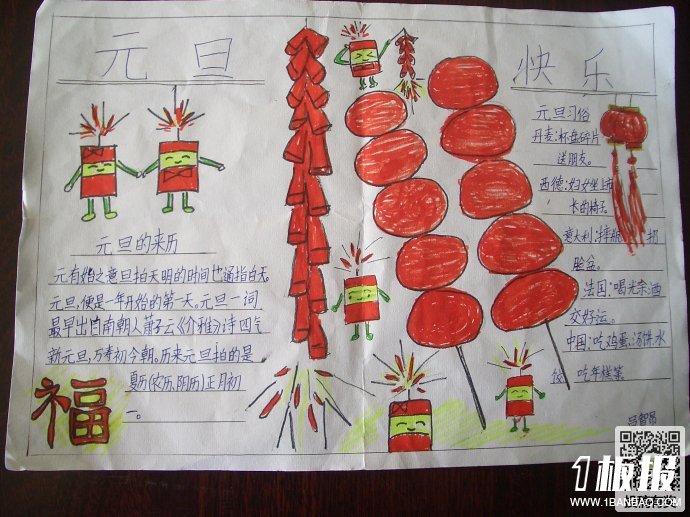 元旦
快乐
元旦的来历
元有始之意旦指天明的时间也通指白天。
元旦,便是一年开始的第一天。元旦一词
最早出自南朝人萧子云《介雅》诗四气
新元旦,万寿初今朝。历来元旦指的是
夏历(农历、阴历)正月初
一。
福
元旦习俗
丹麦:杯盘碎片
送朋友。
西德:妇女坐市
长的椅子
意大利:摔瓶
脸盆。
法国:喝光余酒
交好运。
中国:吃鸡蛋,汤饼水
吃年糕等
1板报
WWW.1BANBAO.COM